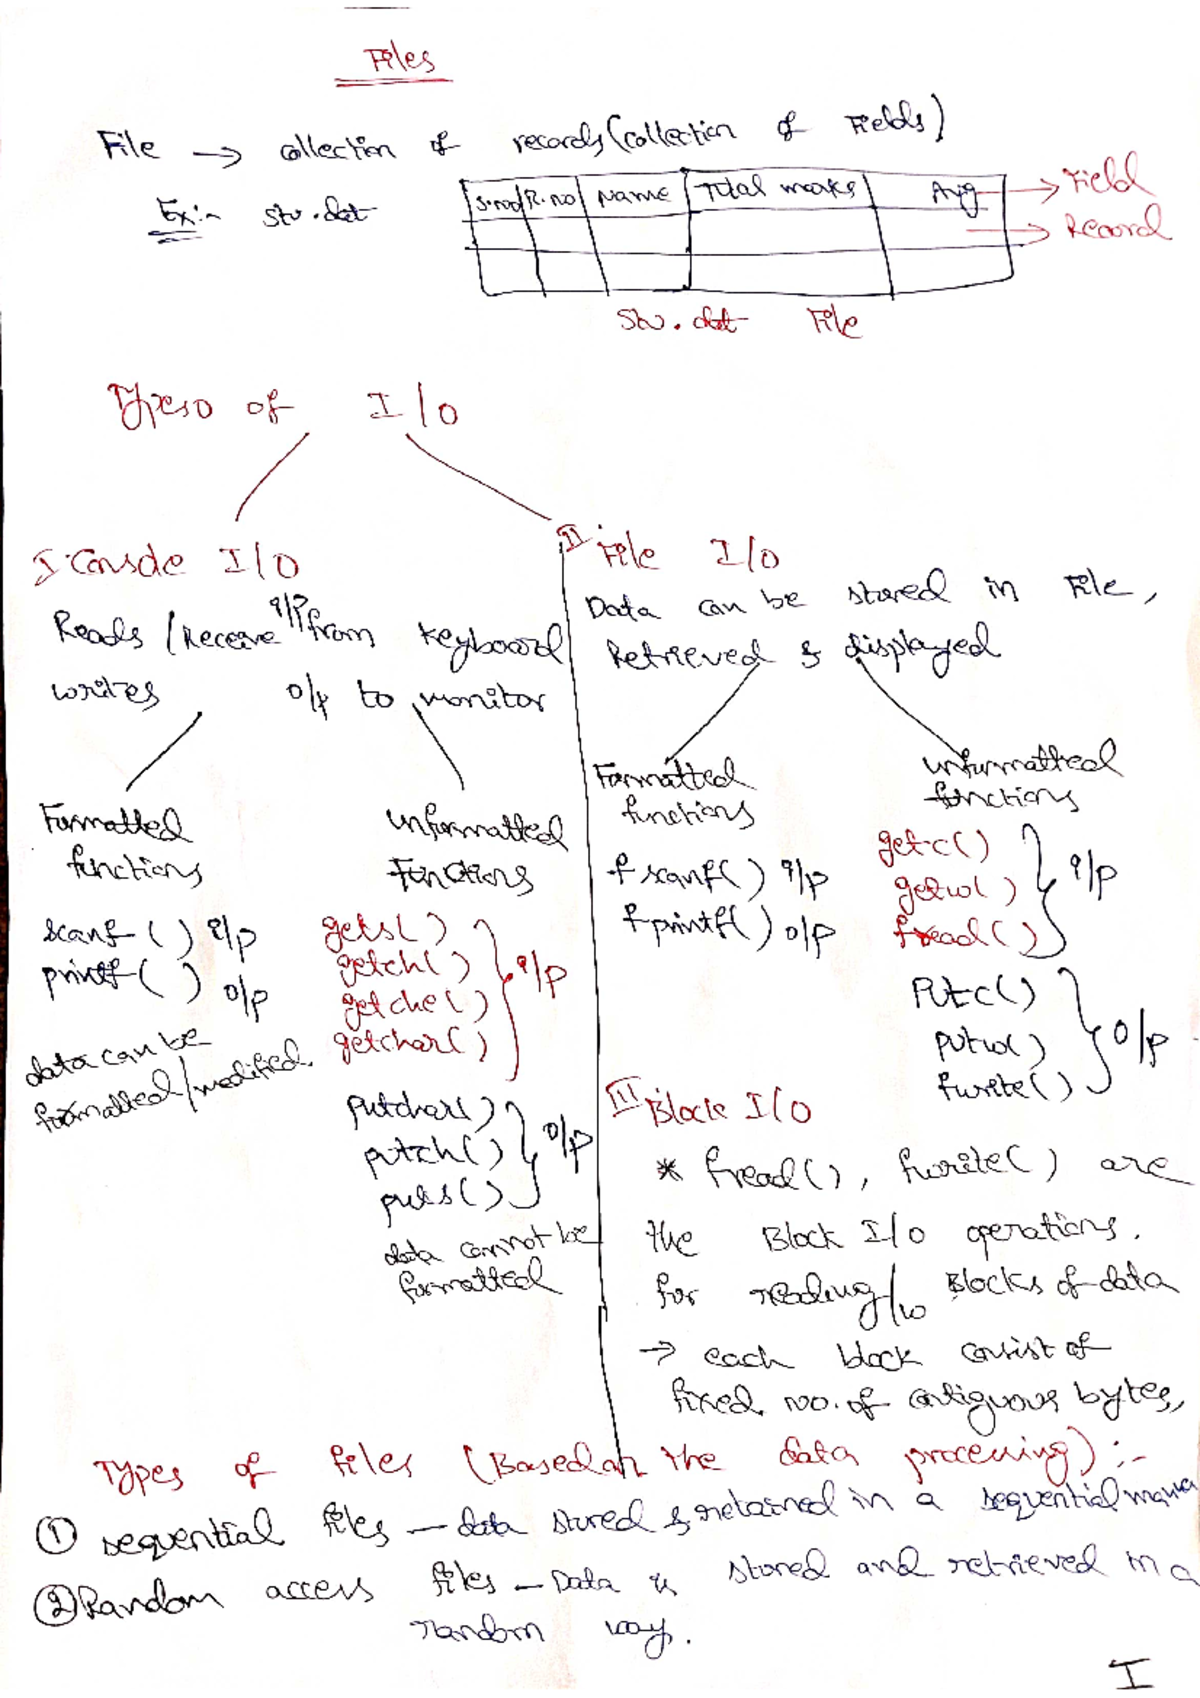 Files
File → collection of records (collection of Fields)
Ex:- stu.dat
S.no R.no Name Total marks Avg → Field
→ Record
Stu.dat File
Types of I/O
I. Console I/O
Reads/Receive i/p from keyboard
writes o/p to monitor
Formatted functions
scanf() i/p
printf() o/p
data can be
formatted/modified.
unformatted
Functions
gets()
getch()
getche()
getchar()
i/p
putchar()
putch()
puts()
o/p
data cannot be
formatted
II File I/O
Data can be stored in File,
Retrieved & displayed
Formatted
functions
fscanf() i/p
fprintf() o/p
unformatted
functions
getc()
getw()
fread()
i/p
Putc()
putw()
fwrite()
o/p
III Block I/O
* fread(), fwrite() are
the Block I/O operations.
for reading/w Blocks of data
→ each block consist of
fixed no. of contiguous bytes,
Types of files (Based on the data processing) :-
① sequential files — data stored & retained in a sequential mana
② Random access files — Data is stored and retrieved in a
random way.
I